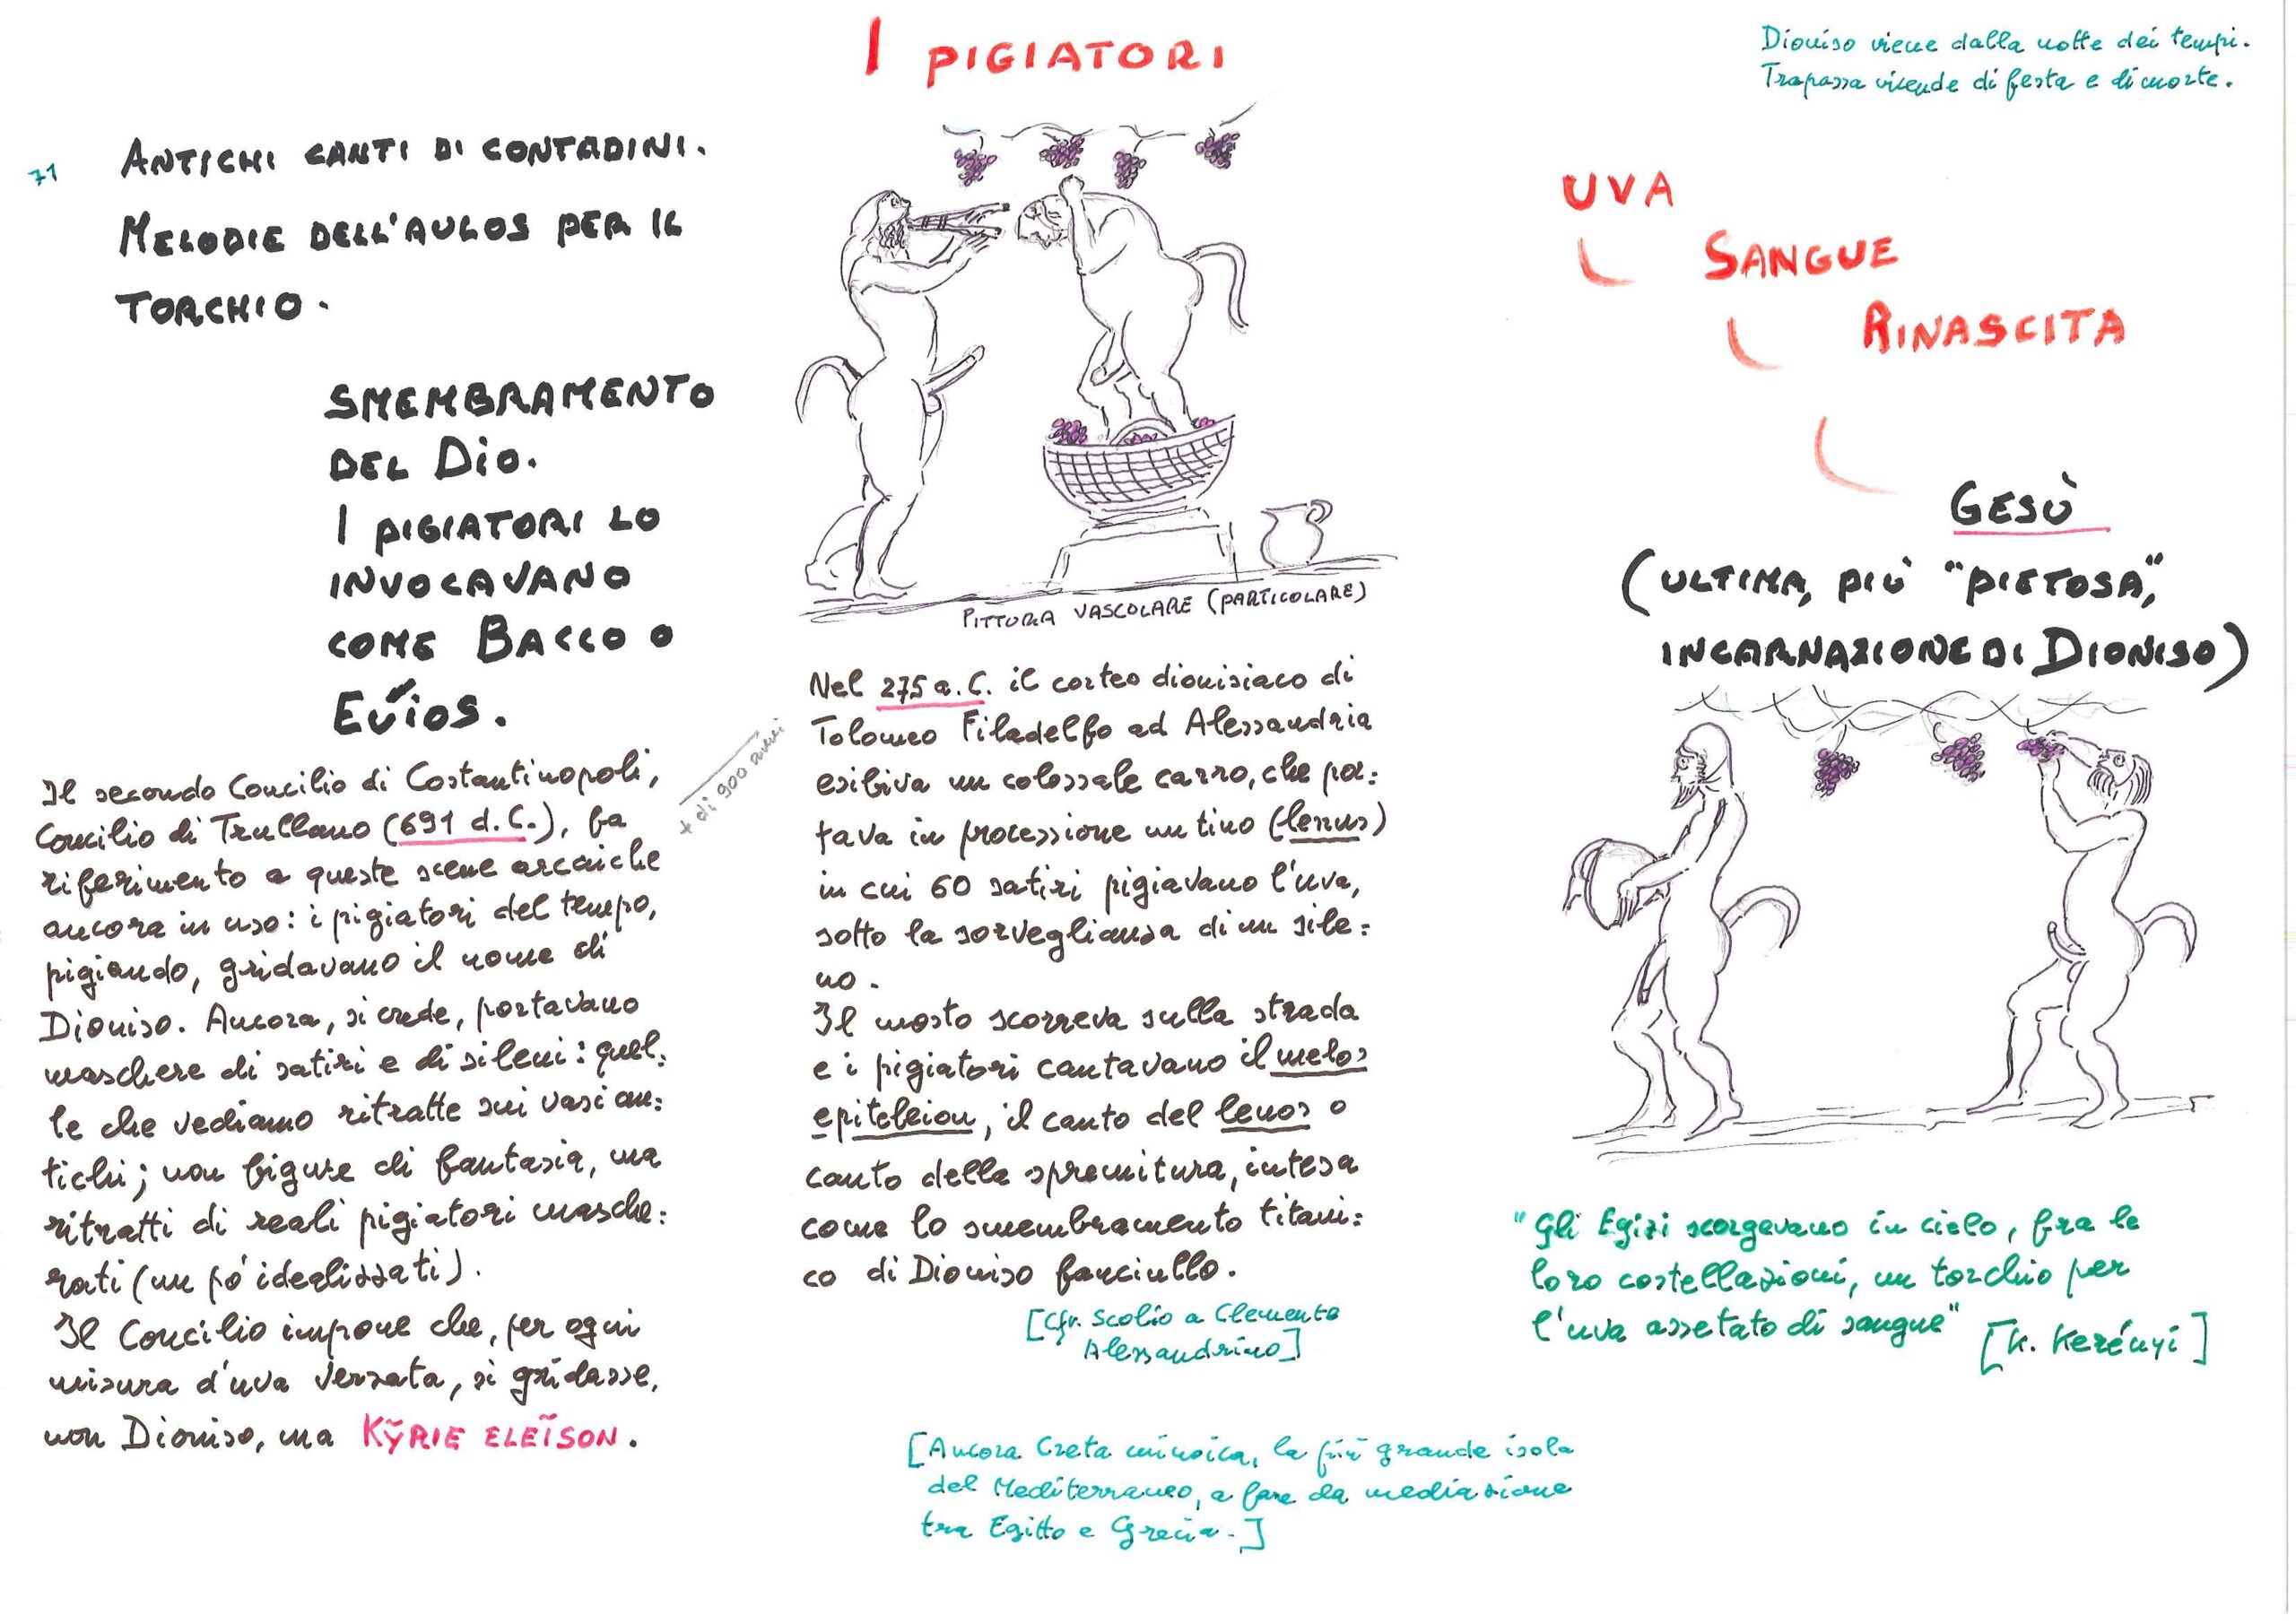 I PIGIATORI
Dioniso viene dalla notte dei tempi.
Trapassa vicende di festa e di morte.
71
ANTICHI CANTI DI CONTADINI.
MELODIE DELL'AULOS PER IL
TORCHIO.
SMEMBRAMENTO
DEL DIO.
I PIGIATORI LO
INVOCAVANO
COME BACCO O
EUIOS.
Il secondo Concilio di Costantinopoli,
Concilio di Trullano (691 d.C.), fa
riferimento a queste scene arcaiche
ancora in uso: i pigiatori del tempo,
pigiando, gridavano il nome di
Dioniso. Ancora, si crede, portavano
maschere di satiri e di sileni: quel:
le che vediamo ritratte sui vasi an:
tichi; non figure di fantasia, ma
ritratti di reali pigiatori masche:
rati (un pó idealizzati).
Il Concilio impone che, per ogni
misura d'uva versata, si gridasse,
non Dioniso, ma KỸRIE ELEĨSON.
+ di 900 anni
PITTURA VASCOLARE (PARTICOLARE)
Nel 275 a.C. il corteo dionisiaco di
Tolomeo Filadelfo ad Alessandria
esibiva un colossale carro, che por:
tava in processione un tino (lenus)
in cui 60 satiri pigiavano l'uva,
sotto la sorveglianza di un sile:
no.
Il mosto scorreva sulla strada
e i pigiatori cantavano il melos
epileleion, il canto del lenos o
canto della spremitura, intesa
come lo smembramento titani:
co di Dioniso fanciullo.
[Cfr. Scolio a Clemente
Alessandrino]
[Ancora Creta minoica, la più grande isola
del Mediterraneo, a fare da mediazione
tra Egitto e Grecia.]
UVA
SANGUE
RINASCITA
GESÙ
(ULTIMA, PIÙ "PIETOSA",
INCARNAZIONE DI DIONISO)
"Gli Egizi scorgevano in cielo, fra le
loro costellazioni, un torchio per
l'uva assetato di sangue"
[K. Kerényi]